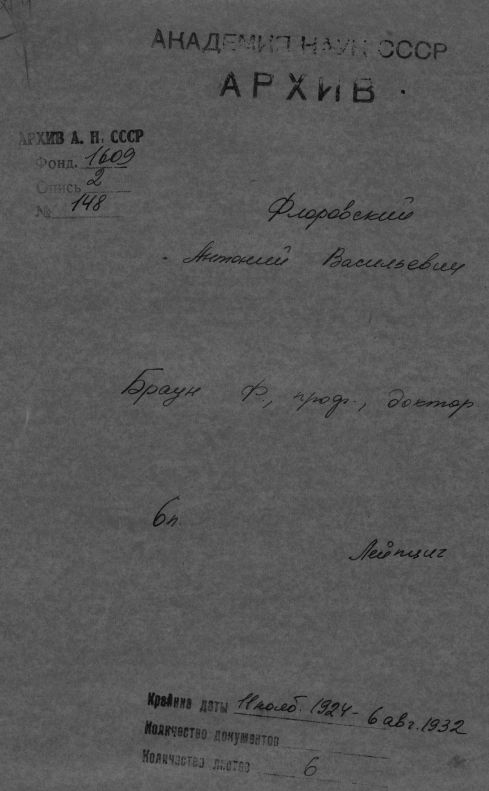 АКАДЕМИЯ НАУК СССР
АРХИВ
АРХИВ А. Н. СССР
Фонд. 1609
Опись 2
№ 148
Флоровский
Антоний Васильевич
Браун Ф., проф., доктор
6п.
Лейпциг
Крайние даты 11 нояб. 1924 - 6 авг. 1932
Количество документов
Количество листов 6